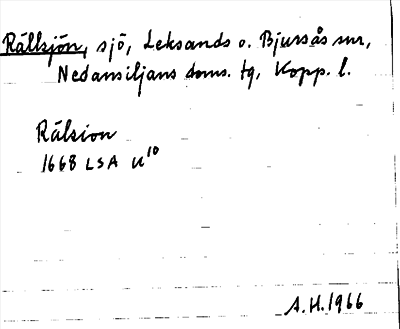 Rällsjön, sjö, Leksands o. Bjursås snr,
Nedansiljans doms. tg, Kopp. l.
Rälsion
1668 LSA U10
A.H. 1966